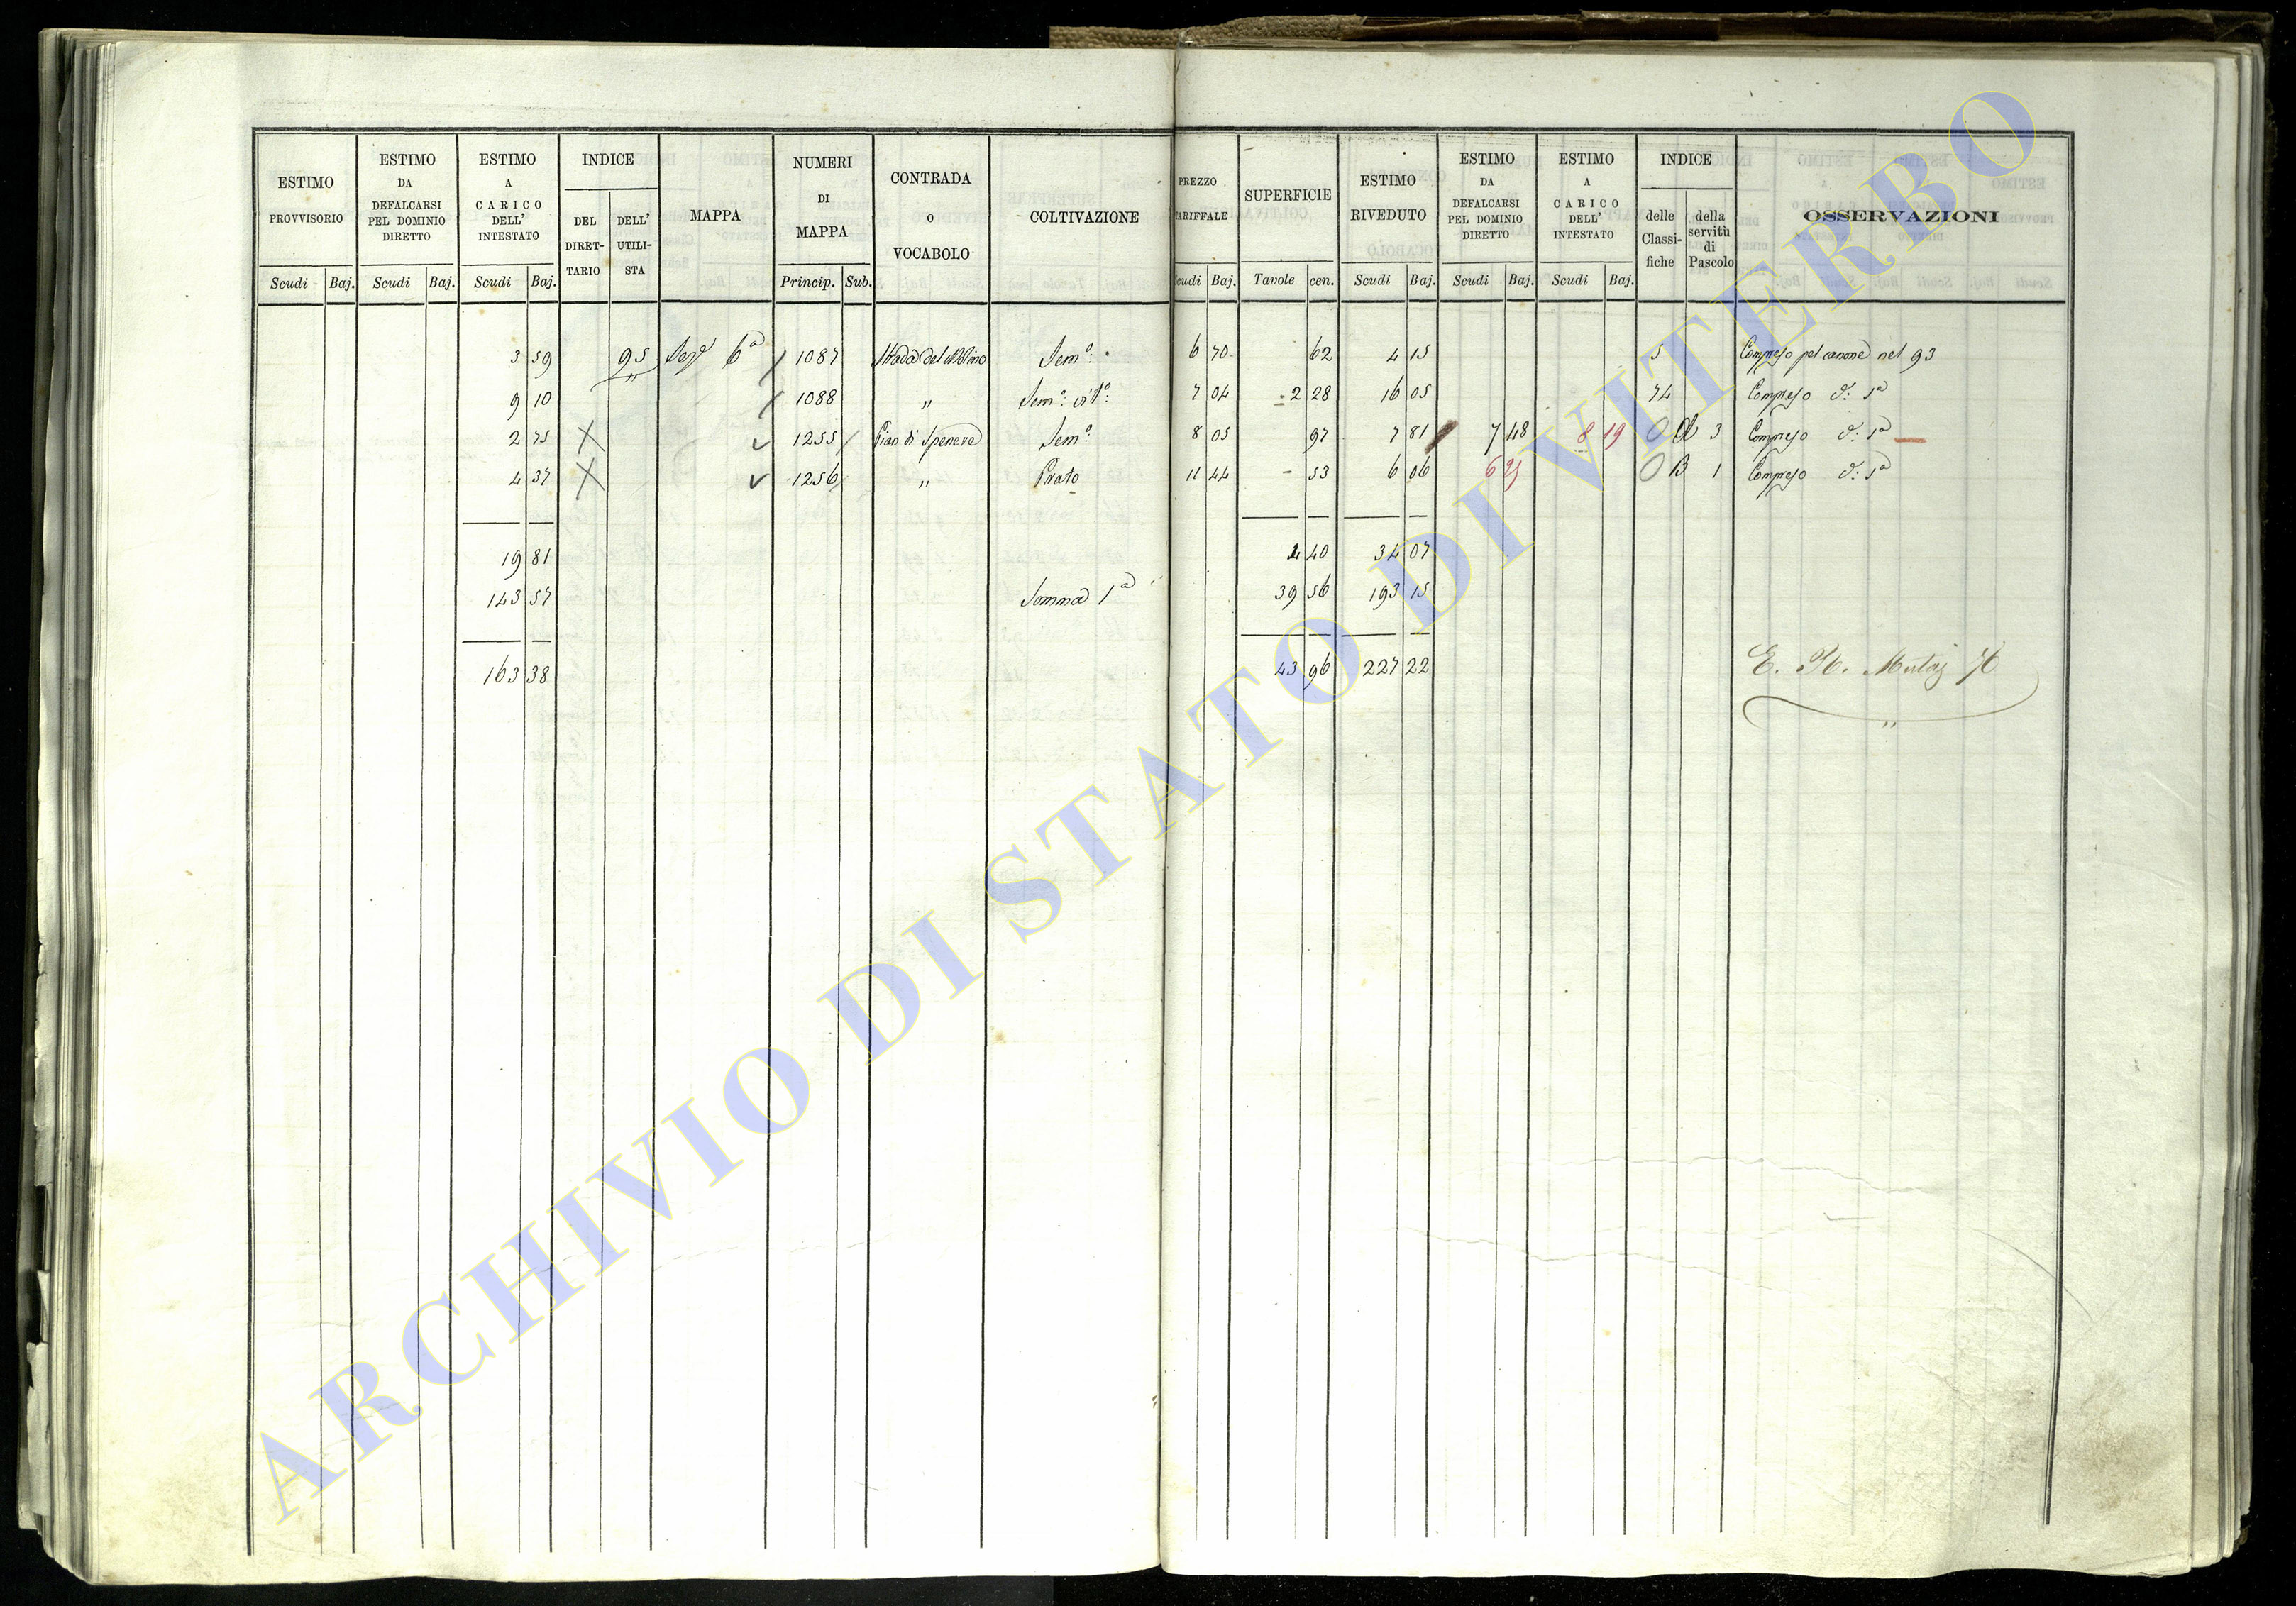 ESTIMO PROVVISORIO | ESTIMO DA DEFALCARSI PEL DOMINIO DIRETTO | ESTIMO A CARICO DELL' INTESTATO | INDICE DEL DIRETTARIO | DELL' UTILISTA | MAPPA | NUMERI DI MAPPA | CONTRADA O VOCABOLO | COLTIVAZIONE | PREZZO TARIFFALE | SUPERFICIE | ESTIMO RIVEDUTO | ESTIMO DA DEFALCARSI PEL DOMINIO DIRETTO | ESTIMO A CARICO DELL' INTESTATO | INDICE delle Classifiche | della servitù di Pascolo | OSSERVAZIONI
Scudi Baj. | Scudi Baj. | Scudi Baj. | Princip. Sub. | Scudi Baj. | Tavole cen. | Scudi Baj. | Scudi Baj. | Scudi Baj.
3 59 | 95 | Sez.e 6a | 1087 | Strada del Molino | Sem.o: | 6 70 | 62 | 4 15 | 5 | Compreso pel canone nel 93
9 10 | 1088 | " | Sem.o: vit.o: | 7 04 | 2 28 | 16 05 | 74 | Compreso d.: 1a
2 75 | X | 1255 | Pian di | Sem.o: | 8 05 | 97 | 7 81 | 7 48 | 8 19 | 3 | Compreso d.: 1a
4 37 | X | 1256 | " | Prato | 11 44 | - 53 | 6 06 | B 1 | Compreso d.: 1a
19 81 | 4 40 | 34 07
143 57 | Somma 1a | 39 56 | 193 15
163 38 | 43 96 | 227 22
ARCHIVIO DI STATO DI VITERBO